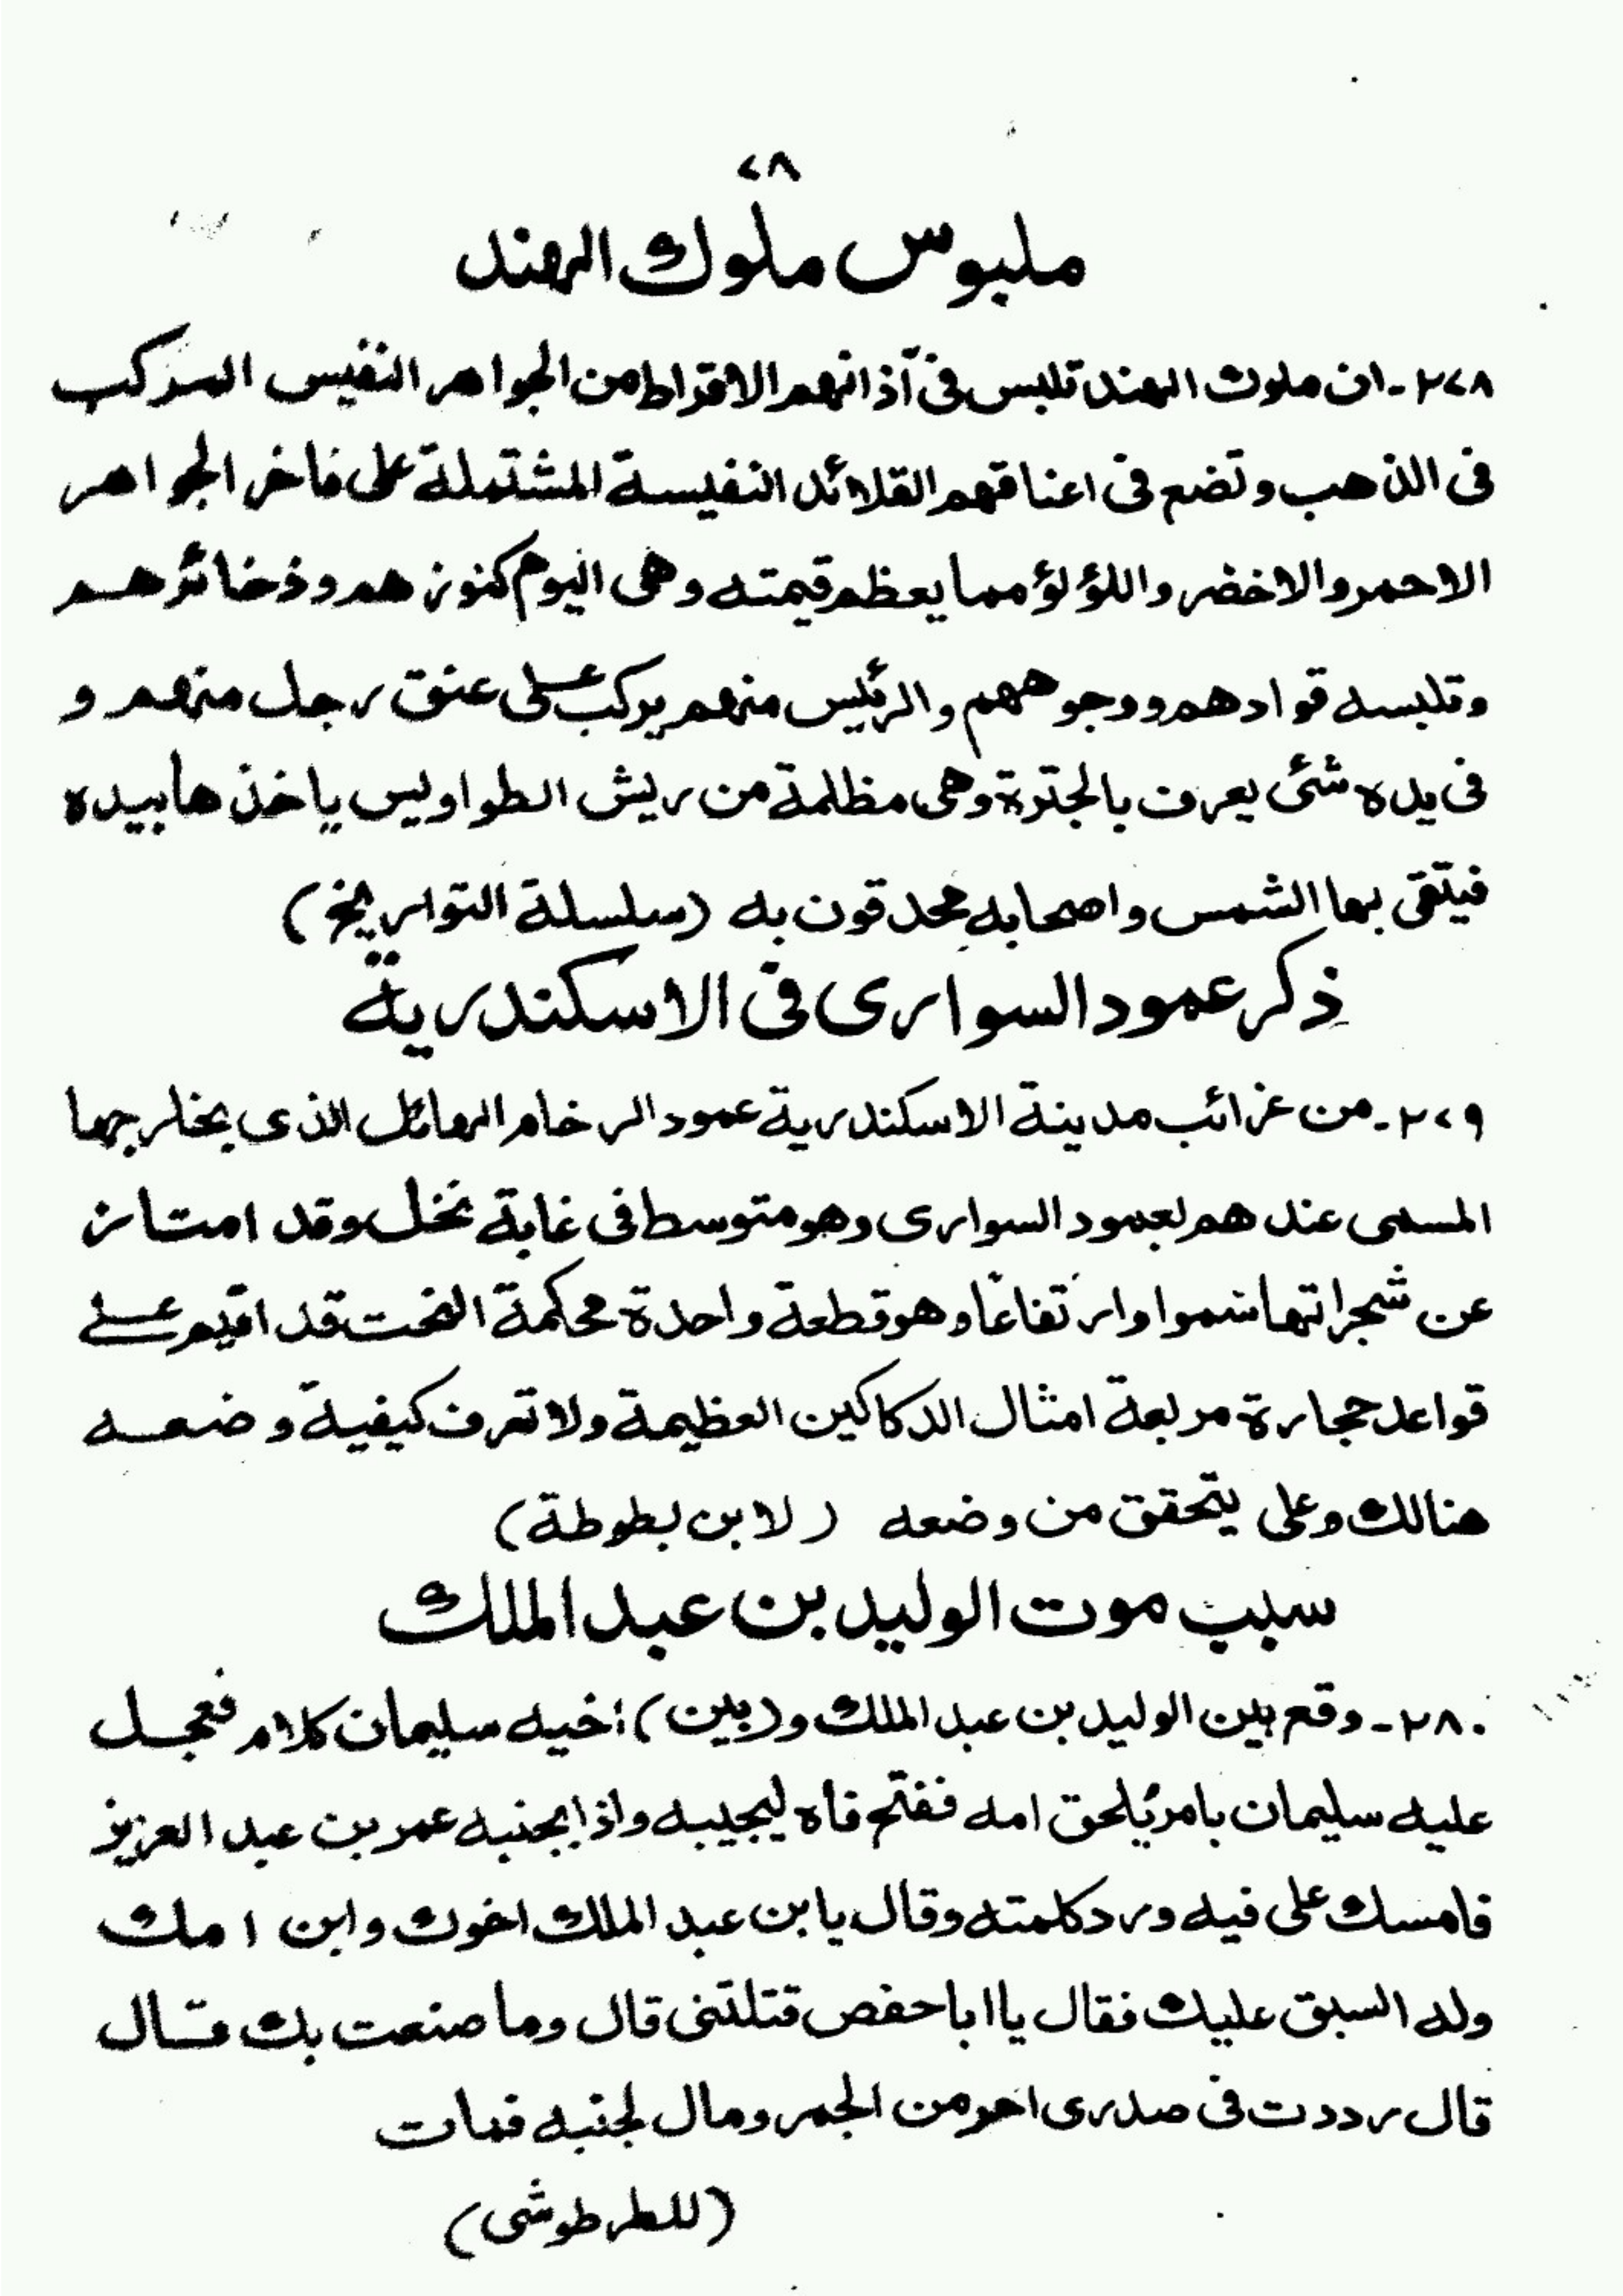 ٢٨
ملبوس ملوك الهند
٢٧٨ - ان ملوك الهند تلبس فى آذانهم الاقراط من الجواهر النفيس المركب
فى الذهب وتضع فى اعناقهم القلائد النفيسة المشتملة على فاخر الجواهر
الاحمر والاخضر واللؤلؤ مما يعظم قيمته وهى اليوم كنوزهم وذخائرهم
وتلبسه قوادهم ووجوههم والرئيس منهم يركب على عنق رجل منهم و
فى يده شئى يعرف بالجترة وهى مظلمة من ريش الطواويس ياخذها بيده
فيتقى بها الشمس واصحابه محدقون به (سلسلة التواريخ)
ذكر عمود السوارى فى الاسكندرية
٢٧٩ - من غرائب مدينة الاسكندرية عمود الرخام الهائل الذى بخارجها
المسمى عندهم لعمود السوارى وهو متوسط فى غابة نخل وقد امتاز
عن شجراتها سموا وارتفاعًا وهو قطعة واحدة محكمة النحت قد اقيم على
قواعد حجارة مربعة امثال الدكاكين العظيمة ولا تعرف كيفية وضعه
هنالك وعلى يتحقق من وضعه (لابن بطوطة)
سبب موت الوليد بن عبد الملك
٢٨٠ - وقع بين الوليد بن عبد الملك و (بين) اخيه سليمان كلام فعجل
عليه سليمان بامر يُلحق امه ففتح فاه ليجيبه واذا بجنبه عمر بن عبد العزيز
فامسك على فيه ورد كلمته وقال يا بن عبد الملك اخوك وابن امك
وله السبق عليك فقال يا ابا حفص قتلتنى قال وما صنعت بك قال
قال رددت فى صدرى احو من الجمر ومال لجنبه فمات
(للطرطوشى)